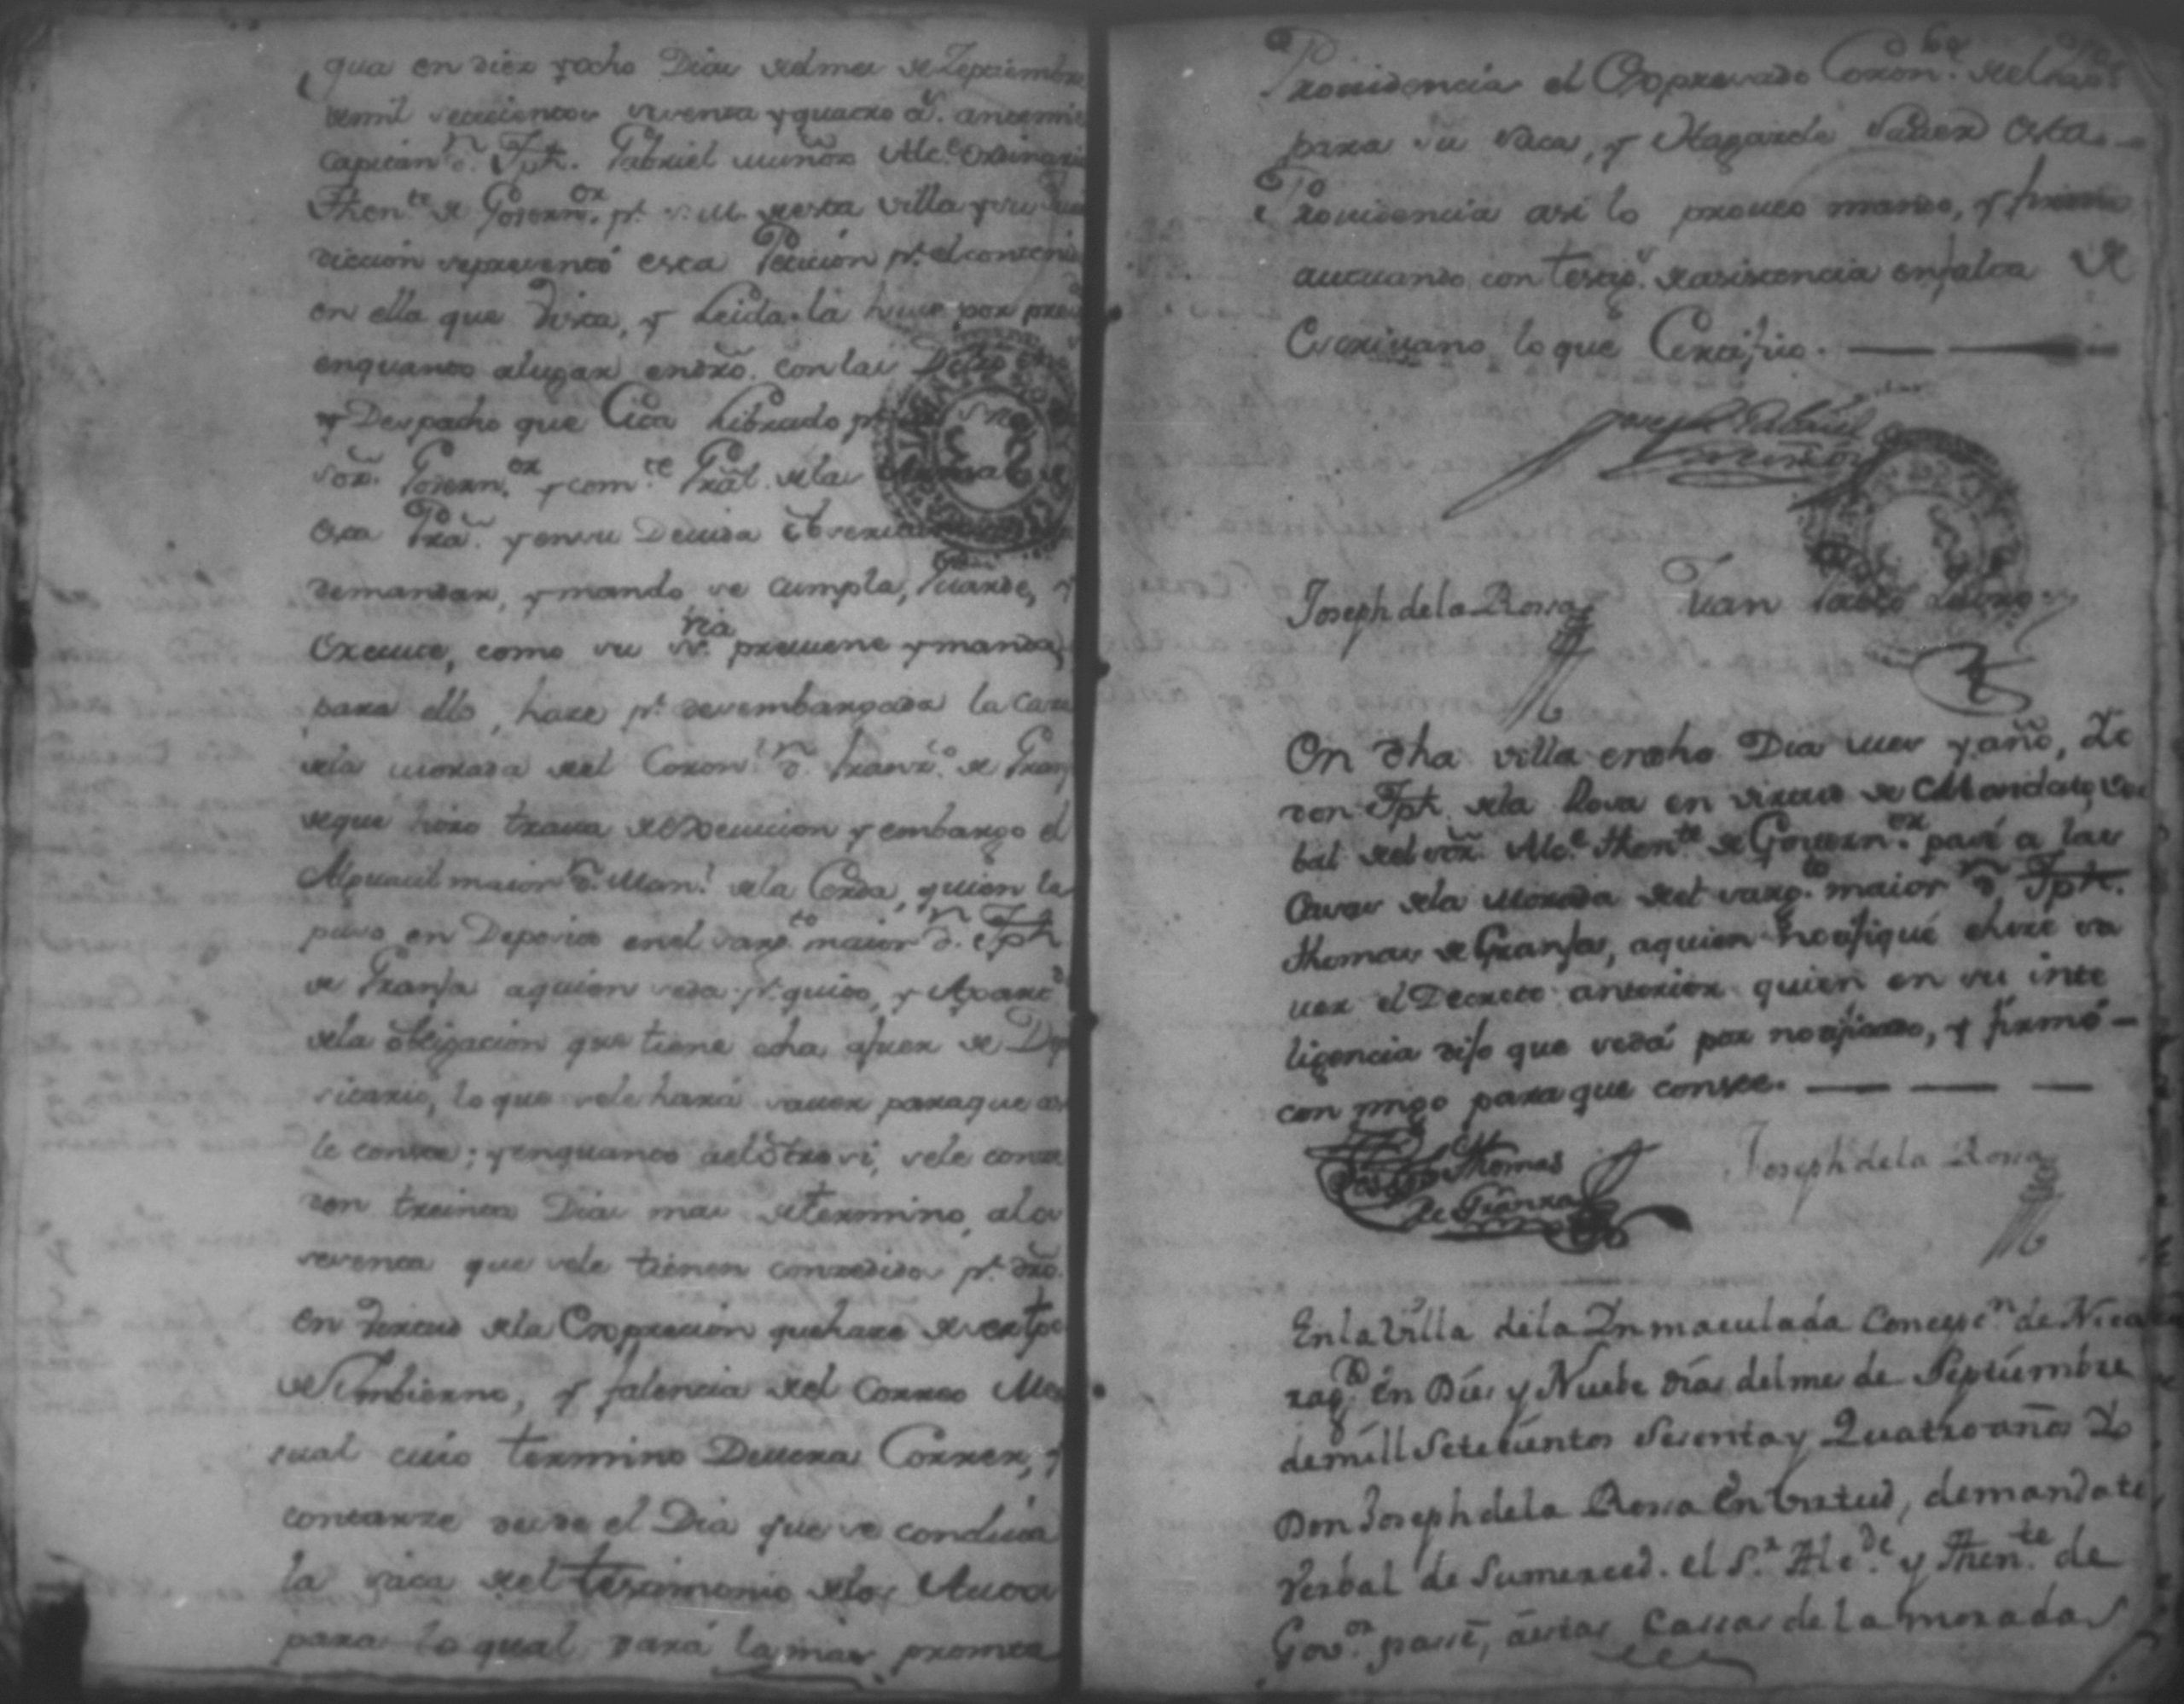 gua en diez y ocho Dias del mes de Septiembre
de mil setecientos sesenta y quatro a.s ante mi el
Capitan d.n Jph. Gabriel muñoz Alc.e Ordinario
Then.te de Governa.or p.r S. M. de esta villa y su Juris
diccion se presentó esta Peticion p.r el contenido
en ella que vista, y Leida la huve por presen
en quanto a lugar en dro. con las
y Despacho que Cita Librado p.r
Sor. Govern.or y com.te Gral de las
Prã. y en su Devida
demandar, y mando se Cumpla, Guarde, y
Execute, como su sr.ria previene y manda,
para ello, hase p.r desembargada la casa
de la morada del Coron.l d.n Franz.co de Gran
de que hizo trava de execucion y embargo el
Alguacil maior d.n Man.l de la Cerda, quien la
puso en Deposito en el sarg.to maior d.n Jph
de Granja a quien se da p.r quito, y Apart.do
de la obligacion que tiene cha afuer de Depo
sitario, lo que se le hará saver para que asi
le conste; y en quanto a el otro si, se le conce
den treinta Dias mas de termino, a los
sesenta que se le tienen concedidos p.r dro.
en virtud de la Expresion que hase de
de Imbierno, y falencia del Correo Men
sual cuio termino Devera Correr, y
contarse desde el Dia que se concluia
la saca del testimonio de los Autos
para lo qual dará la mas prompta
Providencia el Expresado Coron.l
para su saca, y Hagasele Saver esta
Providencia asi lo proveo mando, y firmo
actuando con testig.s de asistencia en falta de
Escrivano lo que Certifico.
Joseph Gabriel
Muñoz
Joseph de la Rossa Juan
En dha villa en dho Dia mes y año, Yo
don Jph. de la Rosa en virtud de Mandato, ver
bal del sor. Alc.e then.te de Govern.or pasé a las
Casas de la Morada del sarg.to maior d.n Jph.
thomas de Granja, a quien notifiqué e hize sa
ver el Decreto anterior quien en su inte
ligencia dijo que se dá por notificado, y firmó
con migo para que conste.
Joseph Thomas
de Granxa
Joseph de la Rossa
En la Villa de la Inmaculada Concepc.n de Nica
rag.a En Dies y Nuebe dias del mes de Septiembre
de mill Setecientos Sesenta y Quatro años Yo
Don Joseph de la Rossa En birtud, de mandato
Verbal de Su merced. el S.r Alc.de y Then.te de
Gov.or passé, á estas Cassas de la morada